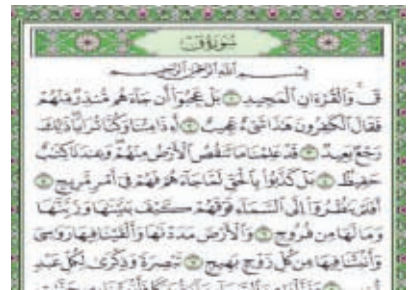 سُورَةُ ق
بِسْمِ اللَّهِ الرَّحْمَٰنِ الرَّحِيمِ
قٓ ۚ وَالْقُرْءَانِ الْمَجِيدِ ۝ بَلْ عَجِبُوٓا۟ أَن جَآءَهُم مُّنذِرٌ مِّنْهُمْ
فَقَالَ الْكَٰفِرُونَ هَٰذَا شَىْءٌ عَجِيبٌ ۝ أَءِذَا مِتْنَا وَكُنَّا تُرَابًا ۖ ذَٰلِكَ
رَجْعٌۢ بَعِيدٌ ۝ قَدْ عَلِمْنَا مَا تَنقُصُ الْأَرْضُ مِنْهُمْ ۖ وَعِندَنَا كِتَٰبٌ
حَفِيظٌۢ ۝ بَلْ كَذَّبُوا۟ بِالْحَقِّ لَمَّا جَآءَهُمْ فَهُمْ فِىٓ أَمْرٍ مَّرِيجٍ ۝
أَفَلَمْ يَنظُرُوٓا۟ إِلَى السَّمَآءِ فَوْقَهُمْ كَيْفَ بَنَيْنَٰهَا وَزَيَّنَّٰهَا
وَمَا لَهَا مِن فُرُوجٍ ۝ وَالْأَرْضَ مَدَدْنَٰهَا وَأَلْقَيْنَا فِيهَا رَوَٰسِىَ
وَأَنۢبَتْنَا فِيهَا مِن كُلِّ زَوْجٍۭ بَهِيجٍ ۝ تَبْصِرَةً وَذِكْرَىٰ لِكُلِّ عَبْدٍ